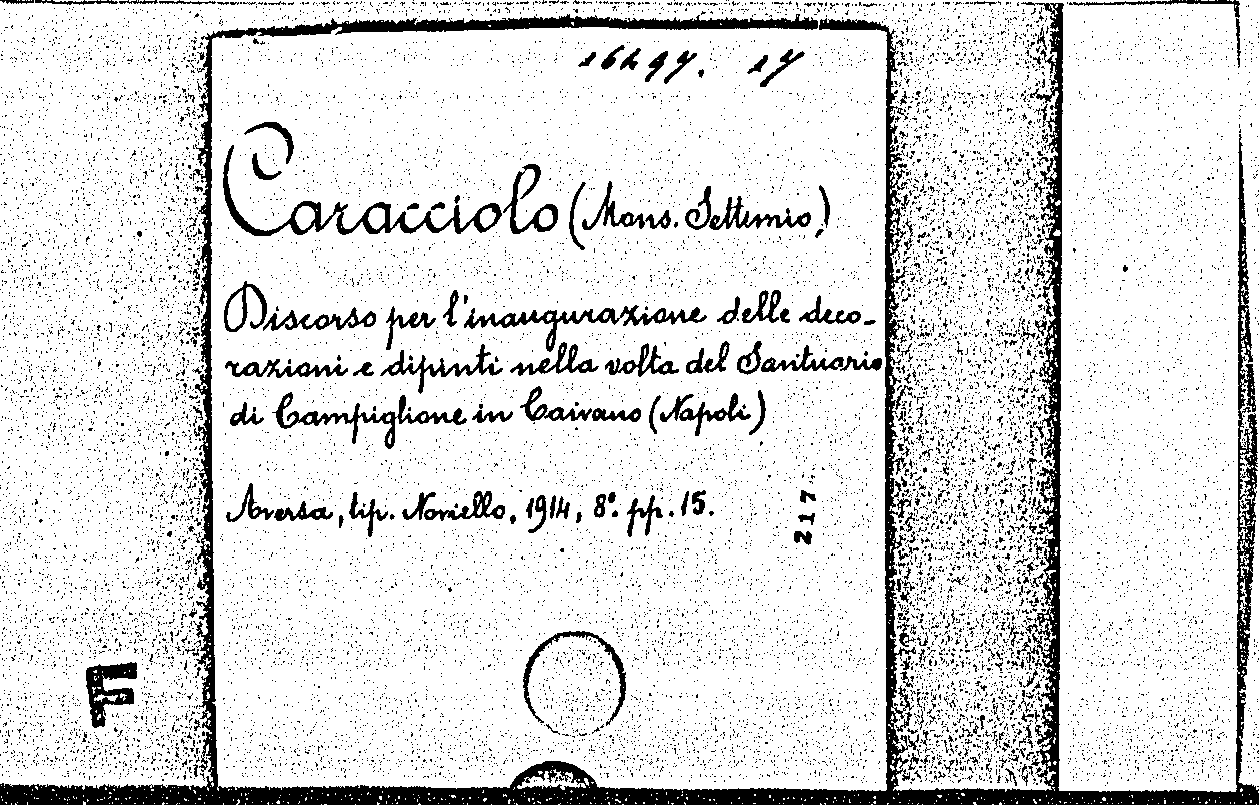 16297. 17
Caracciolo (Mons. Settimio)
Discorso per l'inaugurazione delle deco-
razioni e dipinti nella volta del Santuario
di Campiglione in Caivano (Napoli)
Aversa, tip. Noviello, 1914, 8º. pp. 15.
217
F